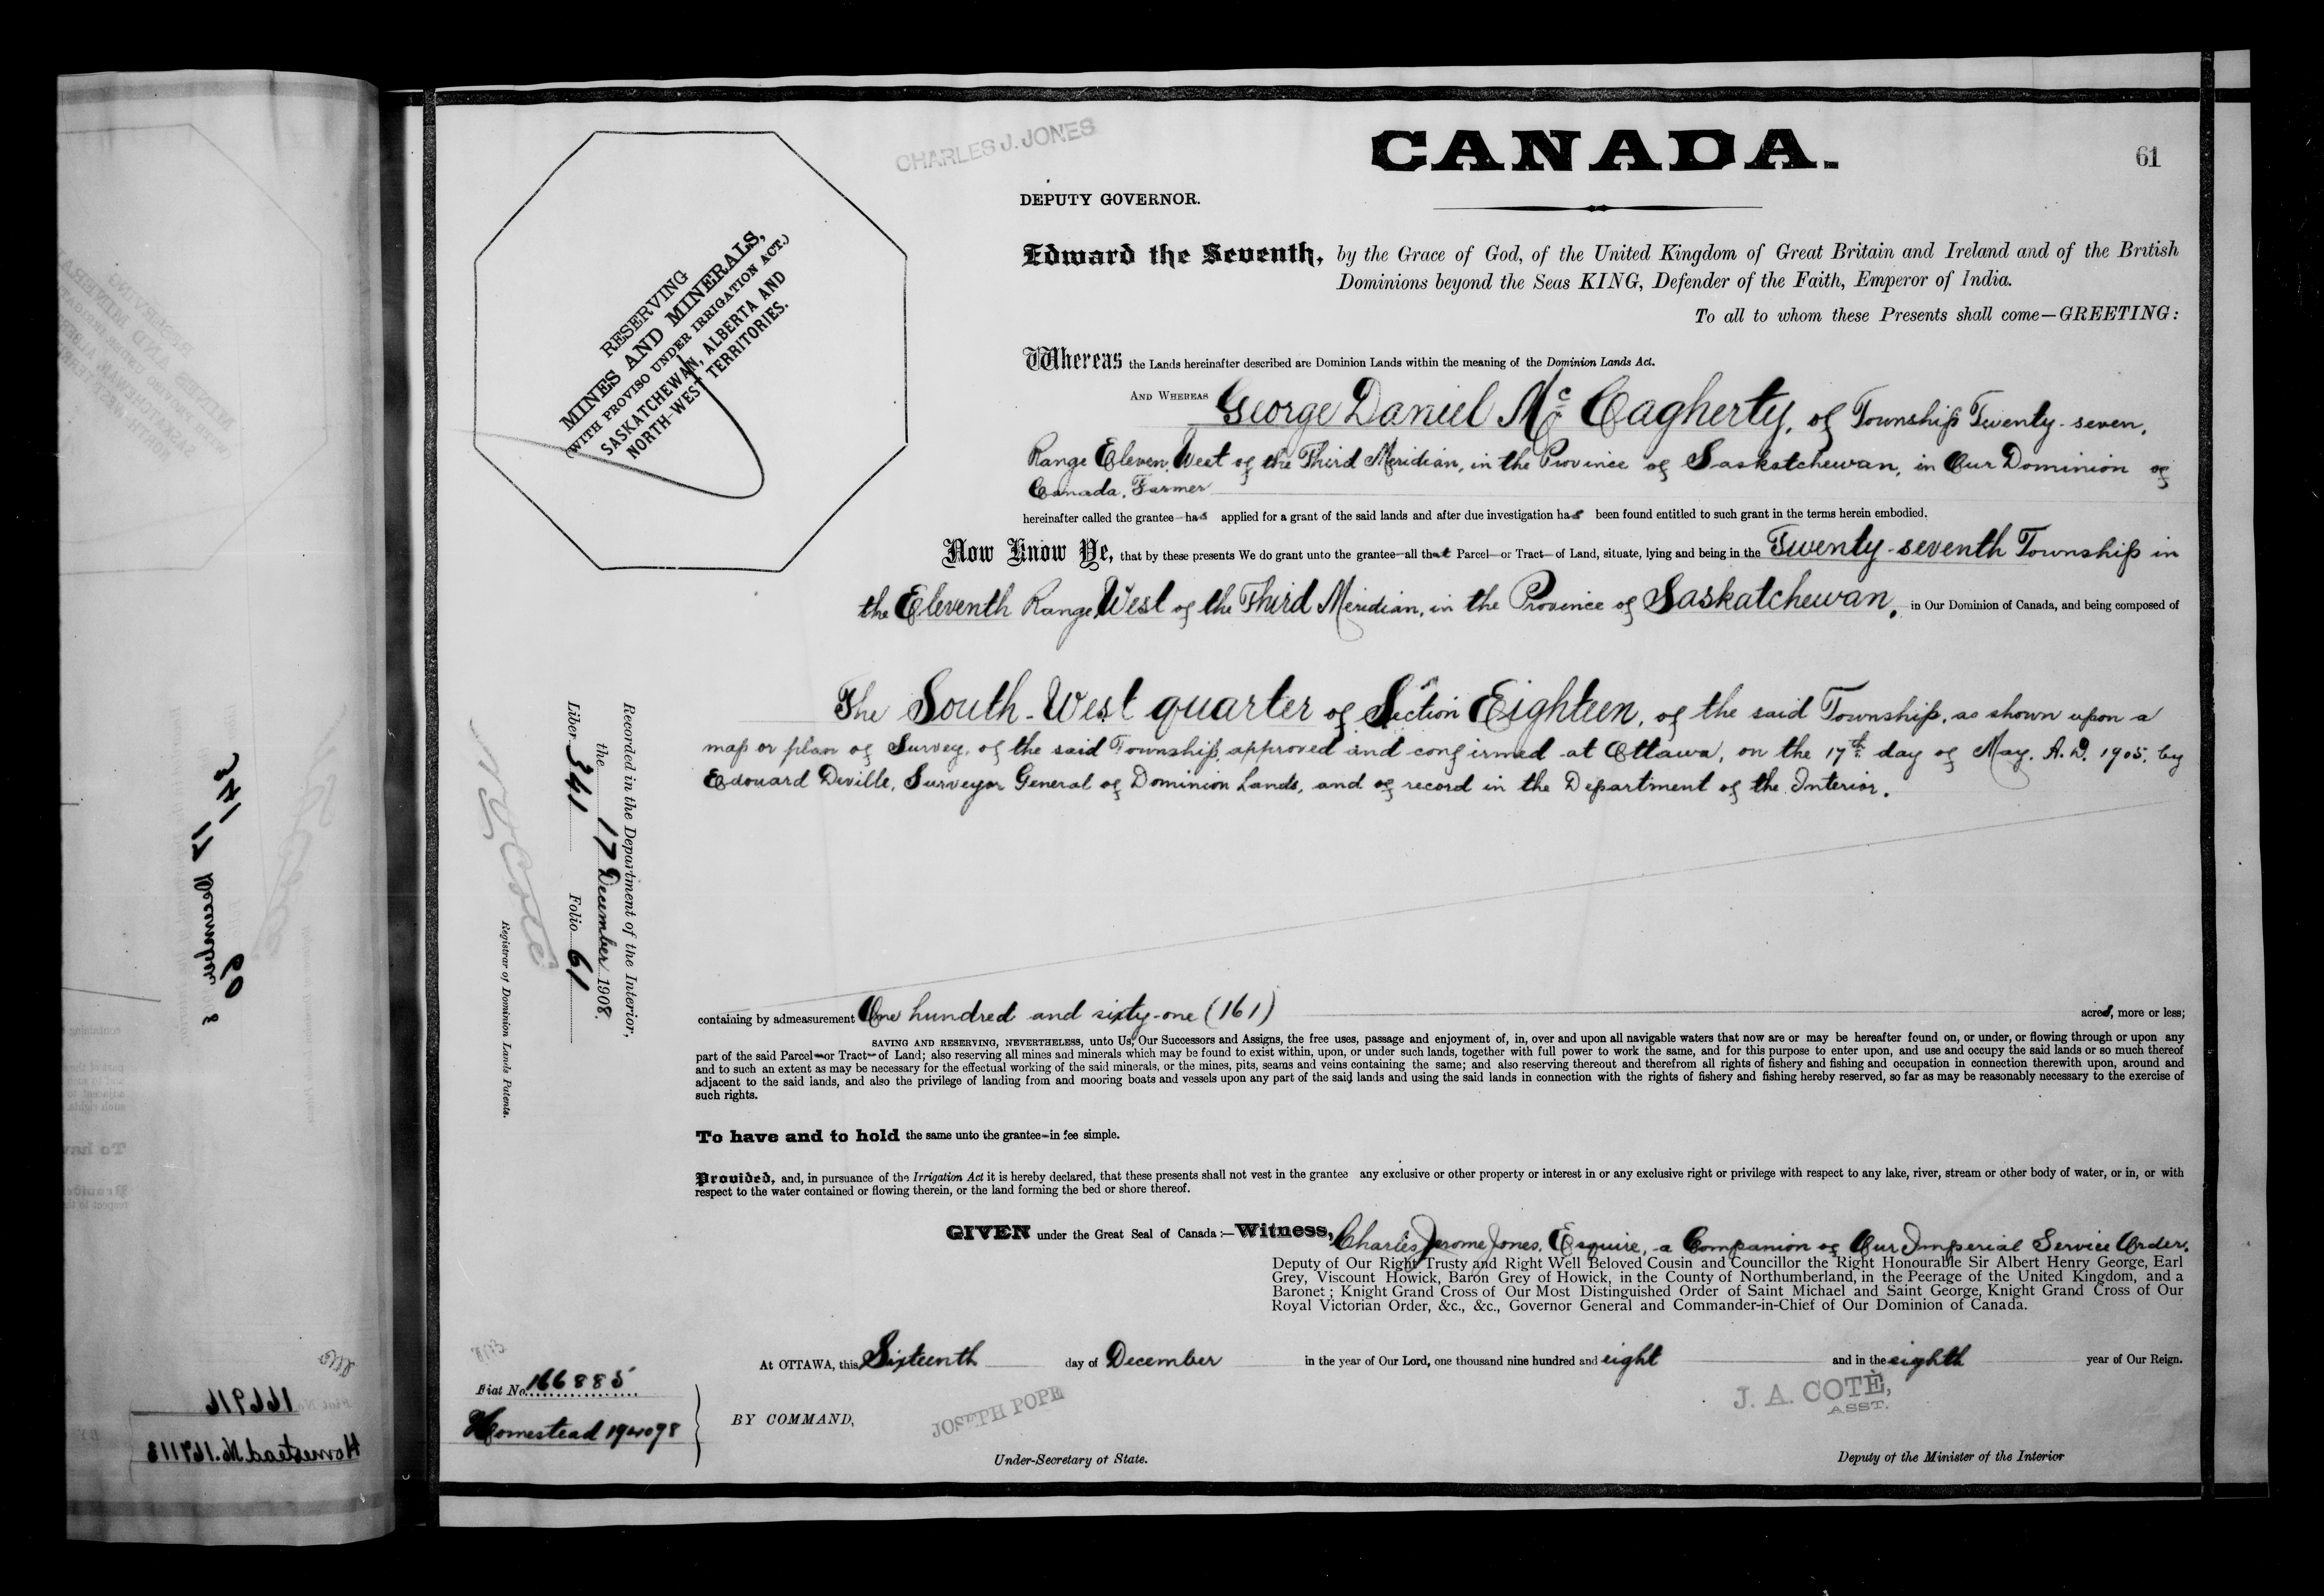 CHARLES J. JONES
CANADA.
61
DEPUTY GOVERNOR.
RESERVING
MINES AND MINERALS,
(WITH PROVISO UNDER IRRIGATION ACT.)
SASKATCHEWAN, ALBERTA AND
NORTH-WEST TERRITORIES.
Edward the Seventh, by the Grace of God, of the United Kingdom of Great Britain and Ireland and of the British
Dominions beyond the Seas KING, Defender of the Faith, Emperor of India.
To all to whom these Presents shall come—GREETING:
Whereas the Lands hereinafter described are Dominion Lands within the meaning of the Dominion Lands Act.
AND WHEREAS George Daniel Mc Cagherty, of Township Twenty-seven,
Range Eleven, West of the Third Meridian, in the Province of Saskatchewan, in Our Dominion of
Canada, Farmer
hereinafter called the grantee—has applied for a grant of the said lands and after due investigation has been found entitled to such grant in the terms herein embodied.
Now Know Ye, that by these presents We do grant unto the grantee—all that Parcel—or Tract—of Land, situate, lying and being in the Twenty-seventh Township in
the Eleventh Range West of the Third Meridian, in the Province of Saskatchewan, in Our Dominion of Canada, and being composed of
The South-West quarter of Section Eighteen, of the said Township, as shown upon a
map or plan of Survey, of the said Township, approved and confirmed at Ottawa, on the 17th day of May, A.D. 1905, by
Edouard Deville, Surveyor General of Dominion Lands, and of record in the Department of the Interior.
Recorded in the Department of the Interior,
the 17 December 1908.
Liber 341 Folio 61
N O Coté
Registrar of Dominion Lands Patents.
containing by admeasurement One hundred and sixty-one (161) acres, more or less;
SAVING AND RESERVING, NEVERTHELESS, unto Us, Our Successors and Assigns, the free uses, passage and enjoyment of, in, over and upon all navigable waters that now are or may be hereafter found on, or under, or flowing through or upon any
part of the said Parcel—or Tract—of Land; also reserving all mines and minerals which may be found to exist within, upon, or under such lands, together with full power to work the same, and for this purpose to enter upon, and use and occupy the said lands or so much thereof
and to such an extent as may be necessary for the effectual working of the said minerals, or the mines, pits, seams and veins containing the same; and also reserving thereout and therefrom all rights of fishery and fishing and occupation in connection therewith upon, around and
adjacent to the said lands, and also the privilege of landing from and mooring boats and vessels upon any part of the said lands and using the said lands in connection with the rights of fishery and fishing hereby reserved, so far as may be reasonably necessary to the exercise of
such rights.
To have and to hold the same unto the grantee—in fee simple.
Provided, and, in pursuance of the Irrigation Act it is hereby declared, that these presents shall not vest in the grantee any exclusive or other property or interest in or any exclusive right or privilege with respect to any lake, river, stream or other body of water, or in, or with
respect to the water contained or flowing therein, or the land forming the bed or shore thereof.
GIVEN under the Great Seal of Canada:—Witness, Charles Jerome Jones, Esquire, a Companion of Our Imperial Service Order,
Deputy of Our Right Trusty and Right Well Beloved Cousin and Councillor the Right Honourable Sir Albert Henry George, Earl
Grey, Viscount Howick, Baron Grey of Howick, in the County of Northumberland, in the Peerage of the United Kingdom, and a
Baronet; Knight Grand Cross of Our Most Distinguished Order of Saint Michael and Saint George, Knight Grand Cross of Our
Royal Victorian Order, &c., &c., Governor General and Commander-in-Chief of Our Dominion of Canada.
At OTTAWA, this Sixteenth day of December in the year of Our Lord, one thousand nine hundred and eight and in the eighth year of Our Reign.
Fiat No. 166885
Homestead 194098
BY COMMAND,
JOSEPH POPE
Under-Secretary of State.
J. A. COTÉ,
ASST.
Deputy of the Minister of the Interior
341
17 December 8
60
166916
Homestead No. 169113